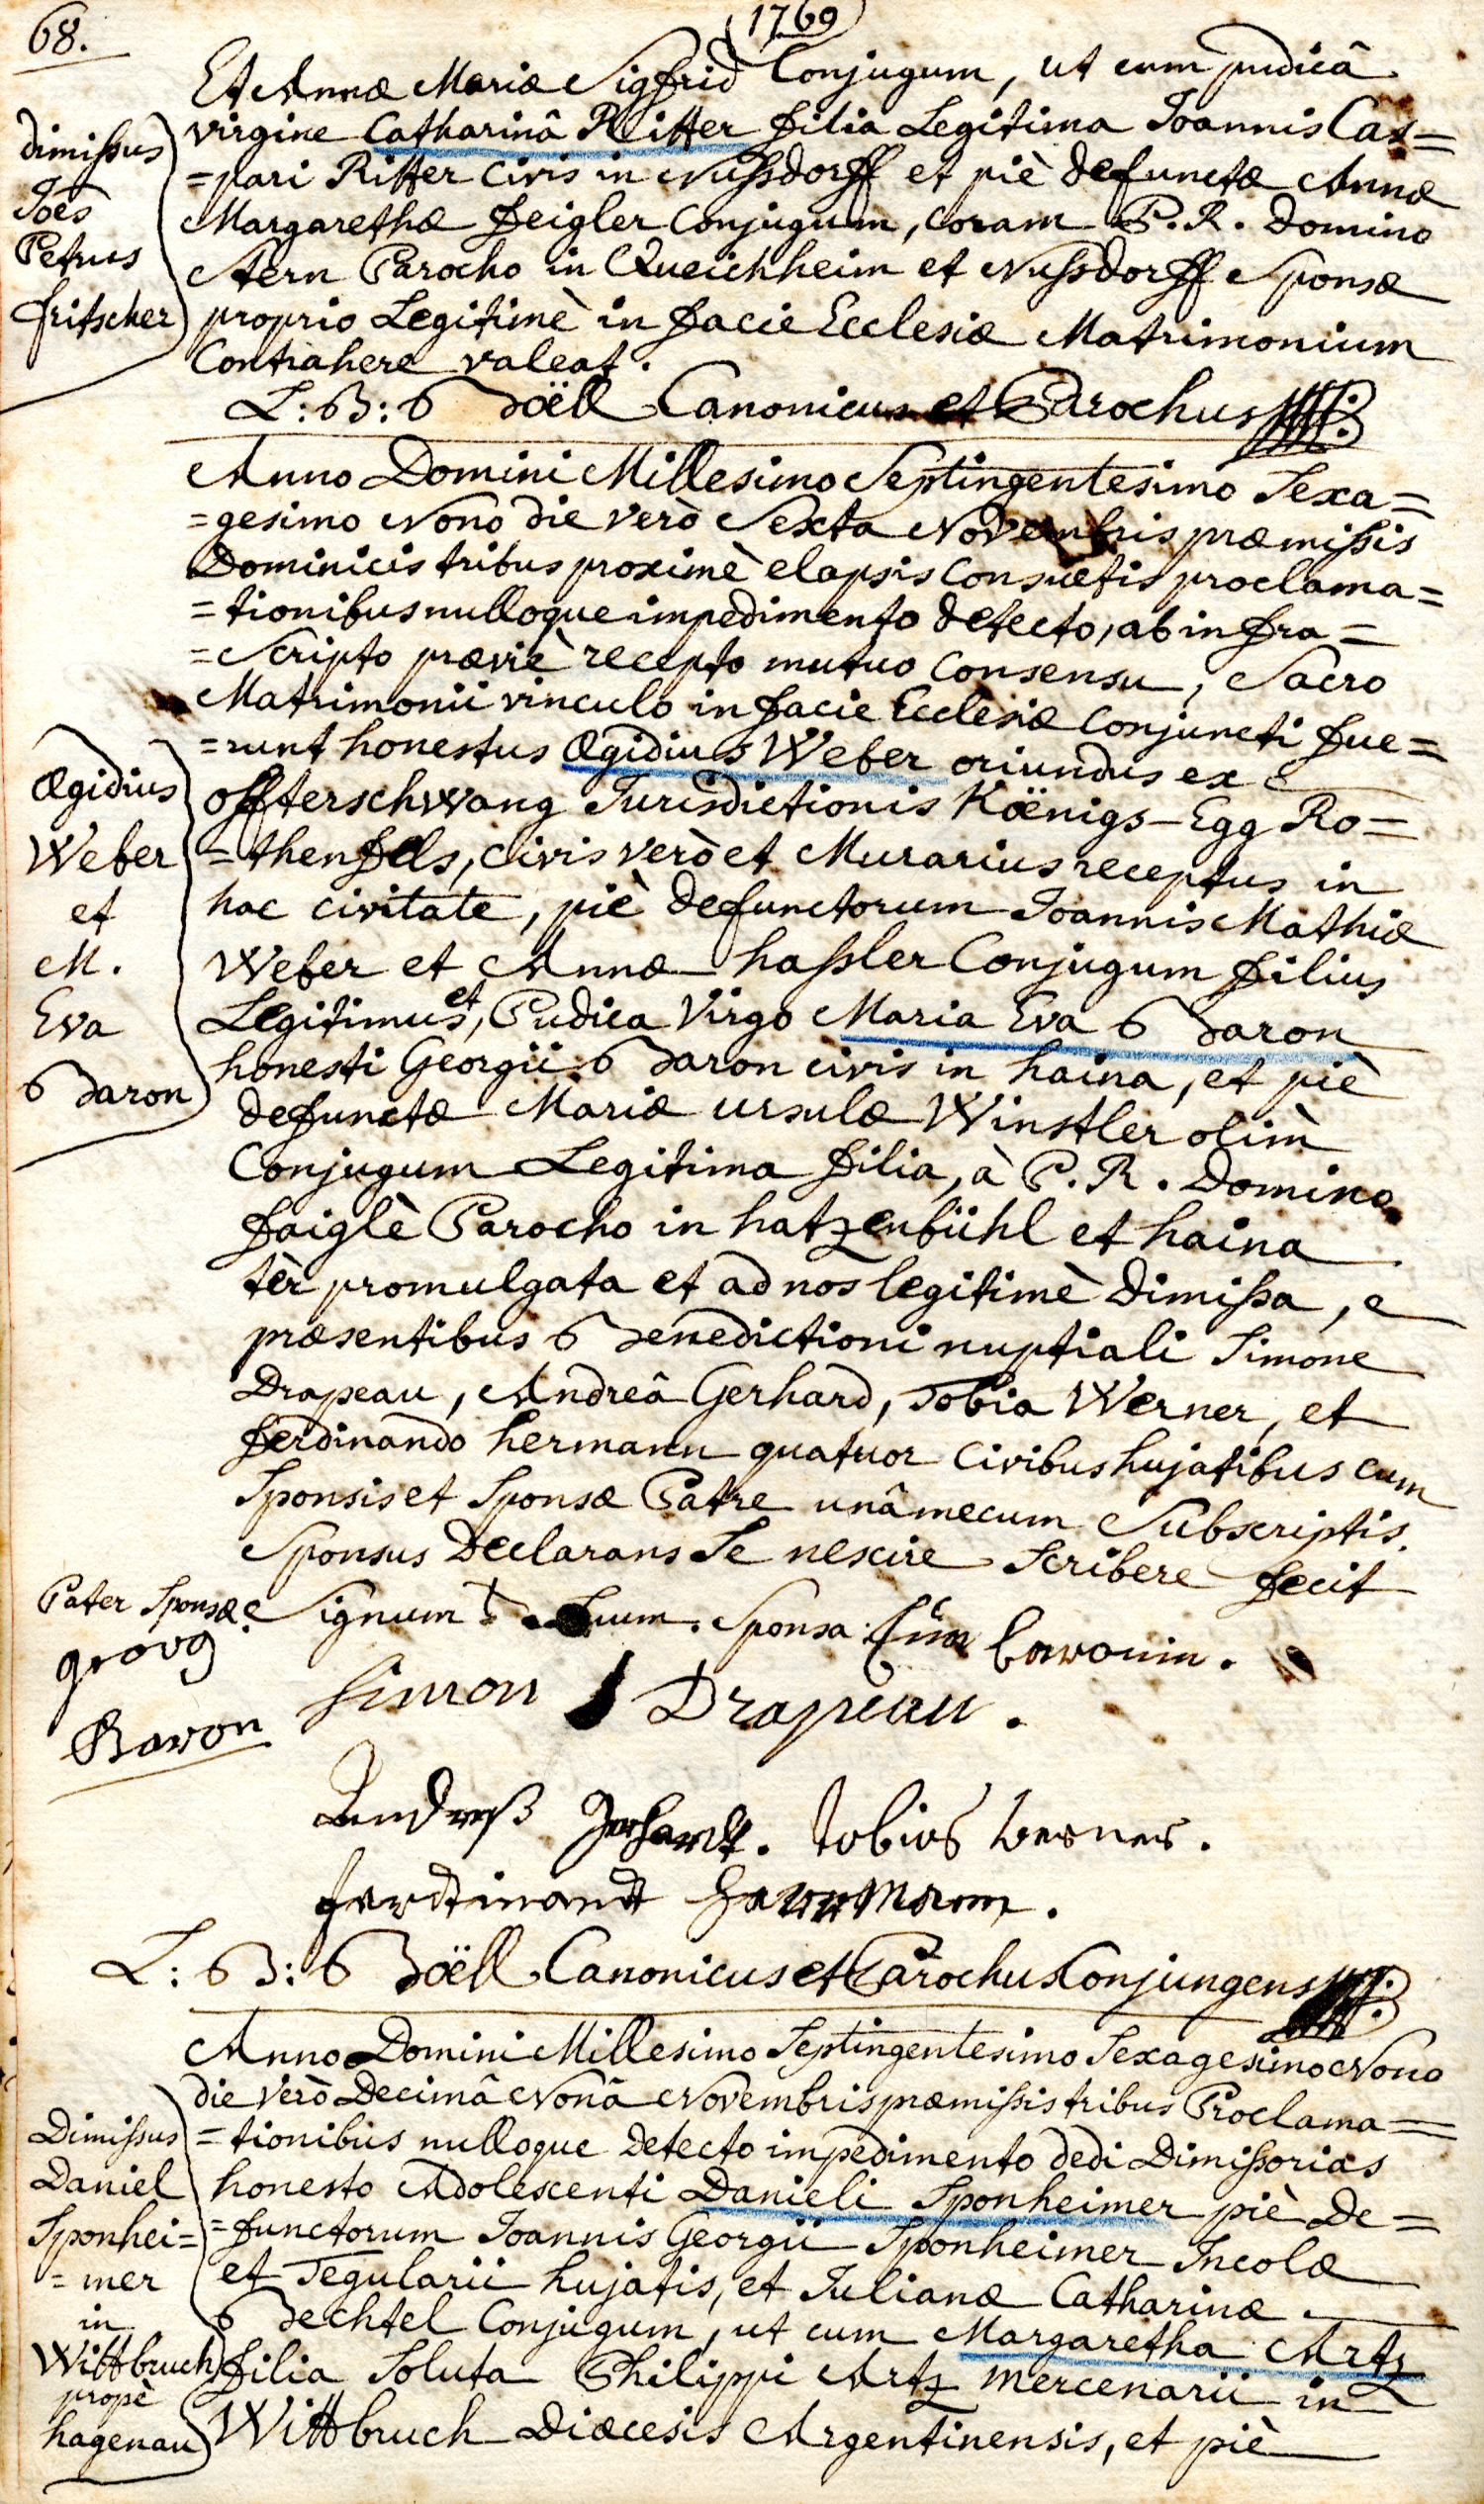 68.
1769
Et Annæ Mariæ Sigfrid Conjugum, ut cum pudicâ
virgine Catharinâ Ritter filia Legitima Joannis Cas=
=pari Ritter civis in Nußdorff et piè defunctæ Annæ
Margarethæ feigler Conjugum, coram P. R. Domino
Stern Parocho in Queichheim et Nußdorff Sponsæ
proprio Legitimè in facie Ecclesiæ Matrimonium
Contrahere valeat.
dimißus
Joēs
Petrus
fritscher
L: B: Boëll Canonicus et Parochus
Anno Domini Millesimo Septingentesimo Sexa=
=gesimo Nono die verò Sexta Novembris præmißis
Dominicis tribus proximè elapsis Consuetis proclama=
=tionibus nulloque impedimento detecto, ab infra=
=Scripto præviè recepto mutuo Consensu, Sacro
Matrimonii vinculo in facie Ecclesiæ Conjuncti fue=
=runt honestus Ægidius Weber oriundus ex
offterschwang Jurisdictionis Köenigs-Egg Ro=
=thenfels, civis verò et Murarius receptus in
hac civitate, piè defunctorum Joannis Mathiæ
Weber et Annæ haßler Conjugum filius
Legitimus, et Pudica Virgo Maria Eva Baron
honesti Georgii Baron civis in haina, et piè
defunctæ Mariæ ursulæ Winstler olim
Conjugum Legitima filia, à P. R. Domino
faiglè Parocho in hatzenbühl et haina
tèr promulgata et ad nos legitimè dimißa,
præsentibus Benedictioni nuptiali Simone
Drapeau, Andreâ Gerhard, Tobia Werner, et
ferdinando hermann quatuor civibus hujatibus cum
Sponsis et Sponsæ Patre unâ mecum Subscriptis.
Sponsus Declarans Se nescire Scribere fecit
Signum + Suum. Sponsa: Eva Baronin.
Ægidius
Weber
et
M.
Eva
Baron
Pater Sponsæ
georg
Baron
Simon Drapeau.
Andreß Gerhardt. Tobias Werner.
ferdinandt Herrmann.
L: B: Boëll Canonicus et Parochus Conjungens
Anno Domini Millesimo Septingentesimo Sexagesimo Nono
die verò Decimâ Nonâ Novembris præmißis tribus Proclama=
=tionibus nulloque detecto impedimento dedi Dimißorias
honesto Adolescenti Danieli Sponheimer piè De=
=functorum Joannis Georgii Sponheimer Incolæ
et Tegularii hujatis, et Julianæ Catharinæ
Bechtel Conjugum, ut cum Margaretha Artz
filia Soluta Philippi Artz mercenarii in
Wittbruch Diœcesis Argentinensis, et piè
Dimißus
Daniel
Sponhei=
=mer
in
Wittbruch
propè
hagenau